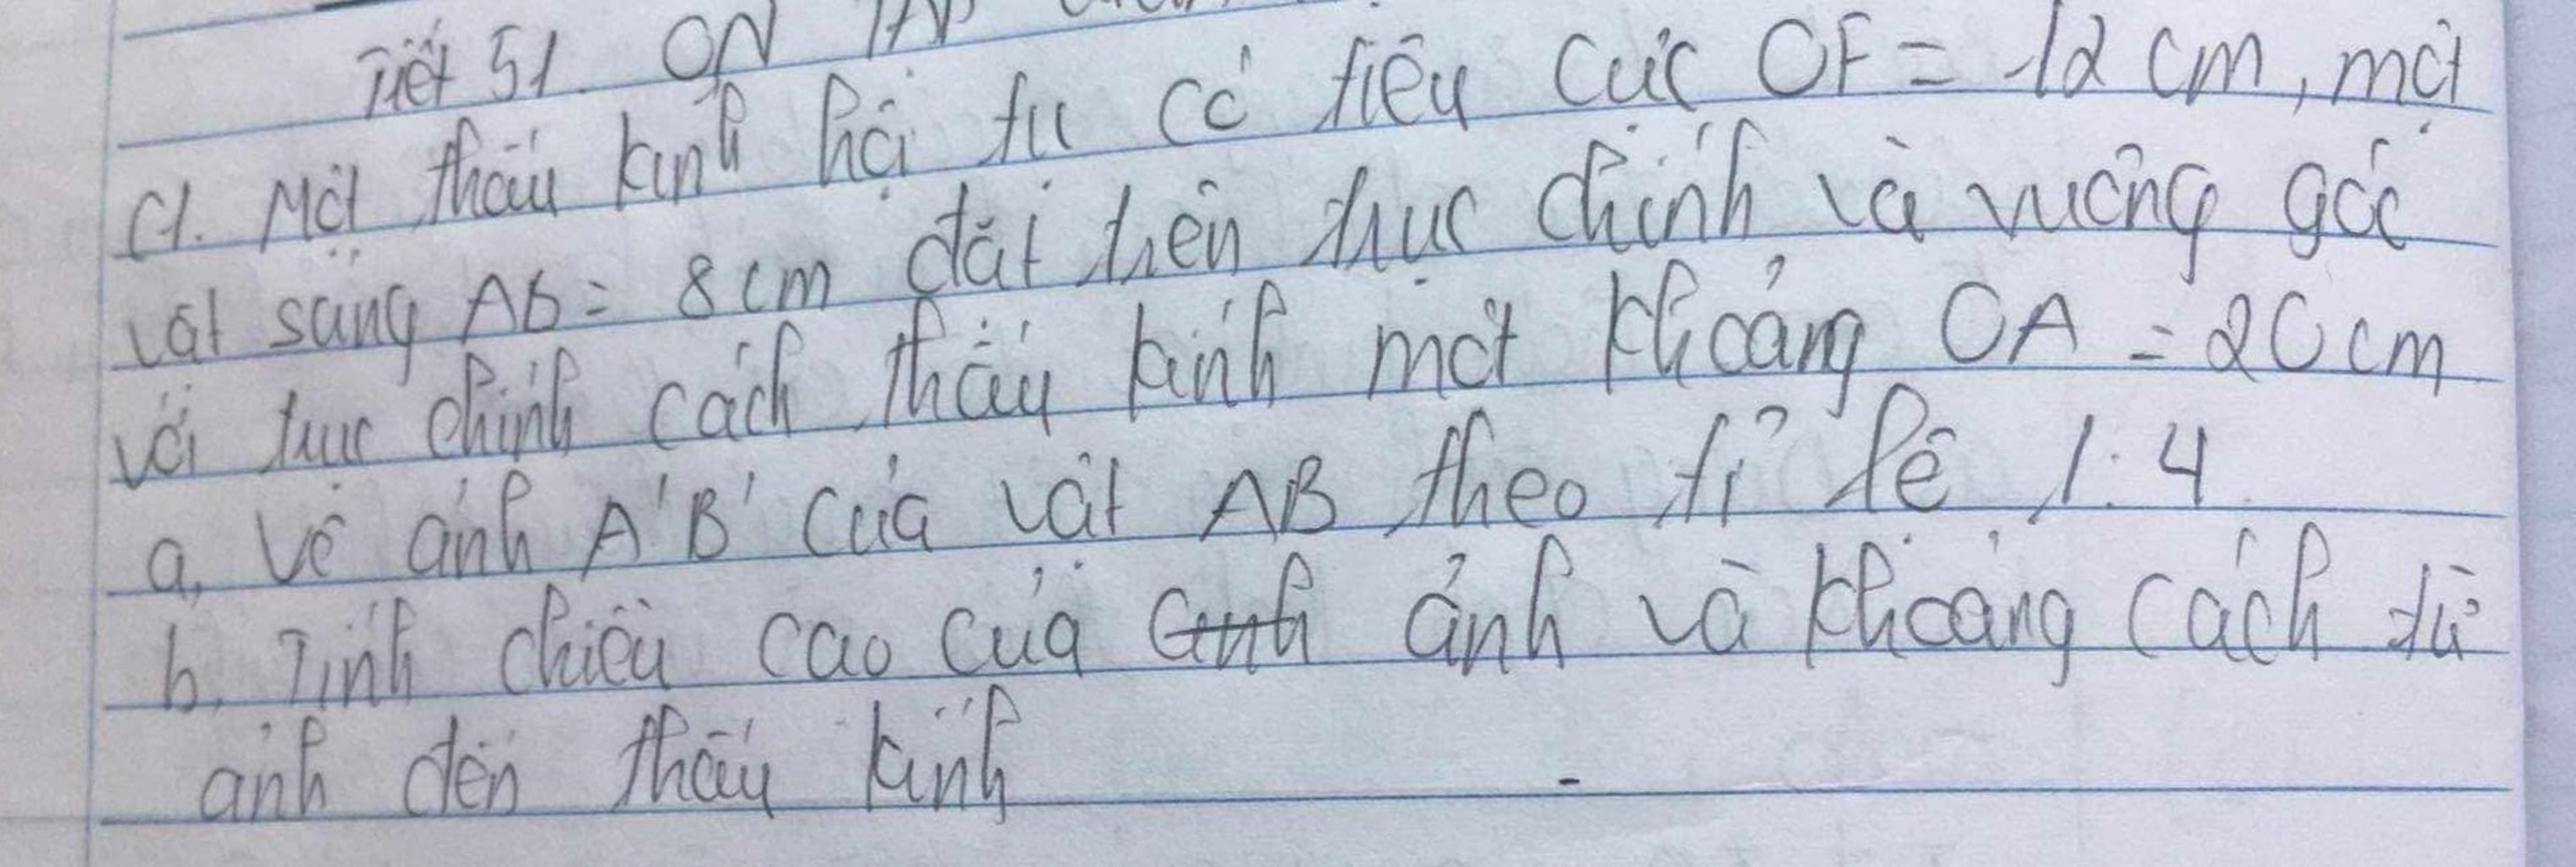 Tiết 51. ÔN TẬP
C1. Một thấu kính hội tụ có tiêu cực OF = 12 cm, một
vật sáng AB = 8 cm đặt trên trục chính và vuông góc
với trục chính cách thấu kính một khoảng OA = 20 cm
a, Vẽ ảnh A'B' của vật AB theo tỉ lệ 1:4
b. Tính chiều cao của ảnh và khoảng cách từ
ảnh đến thấu kính